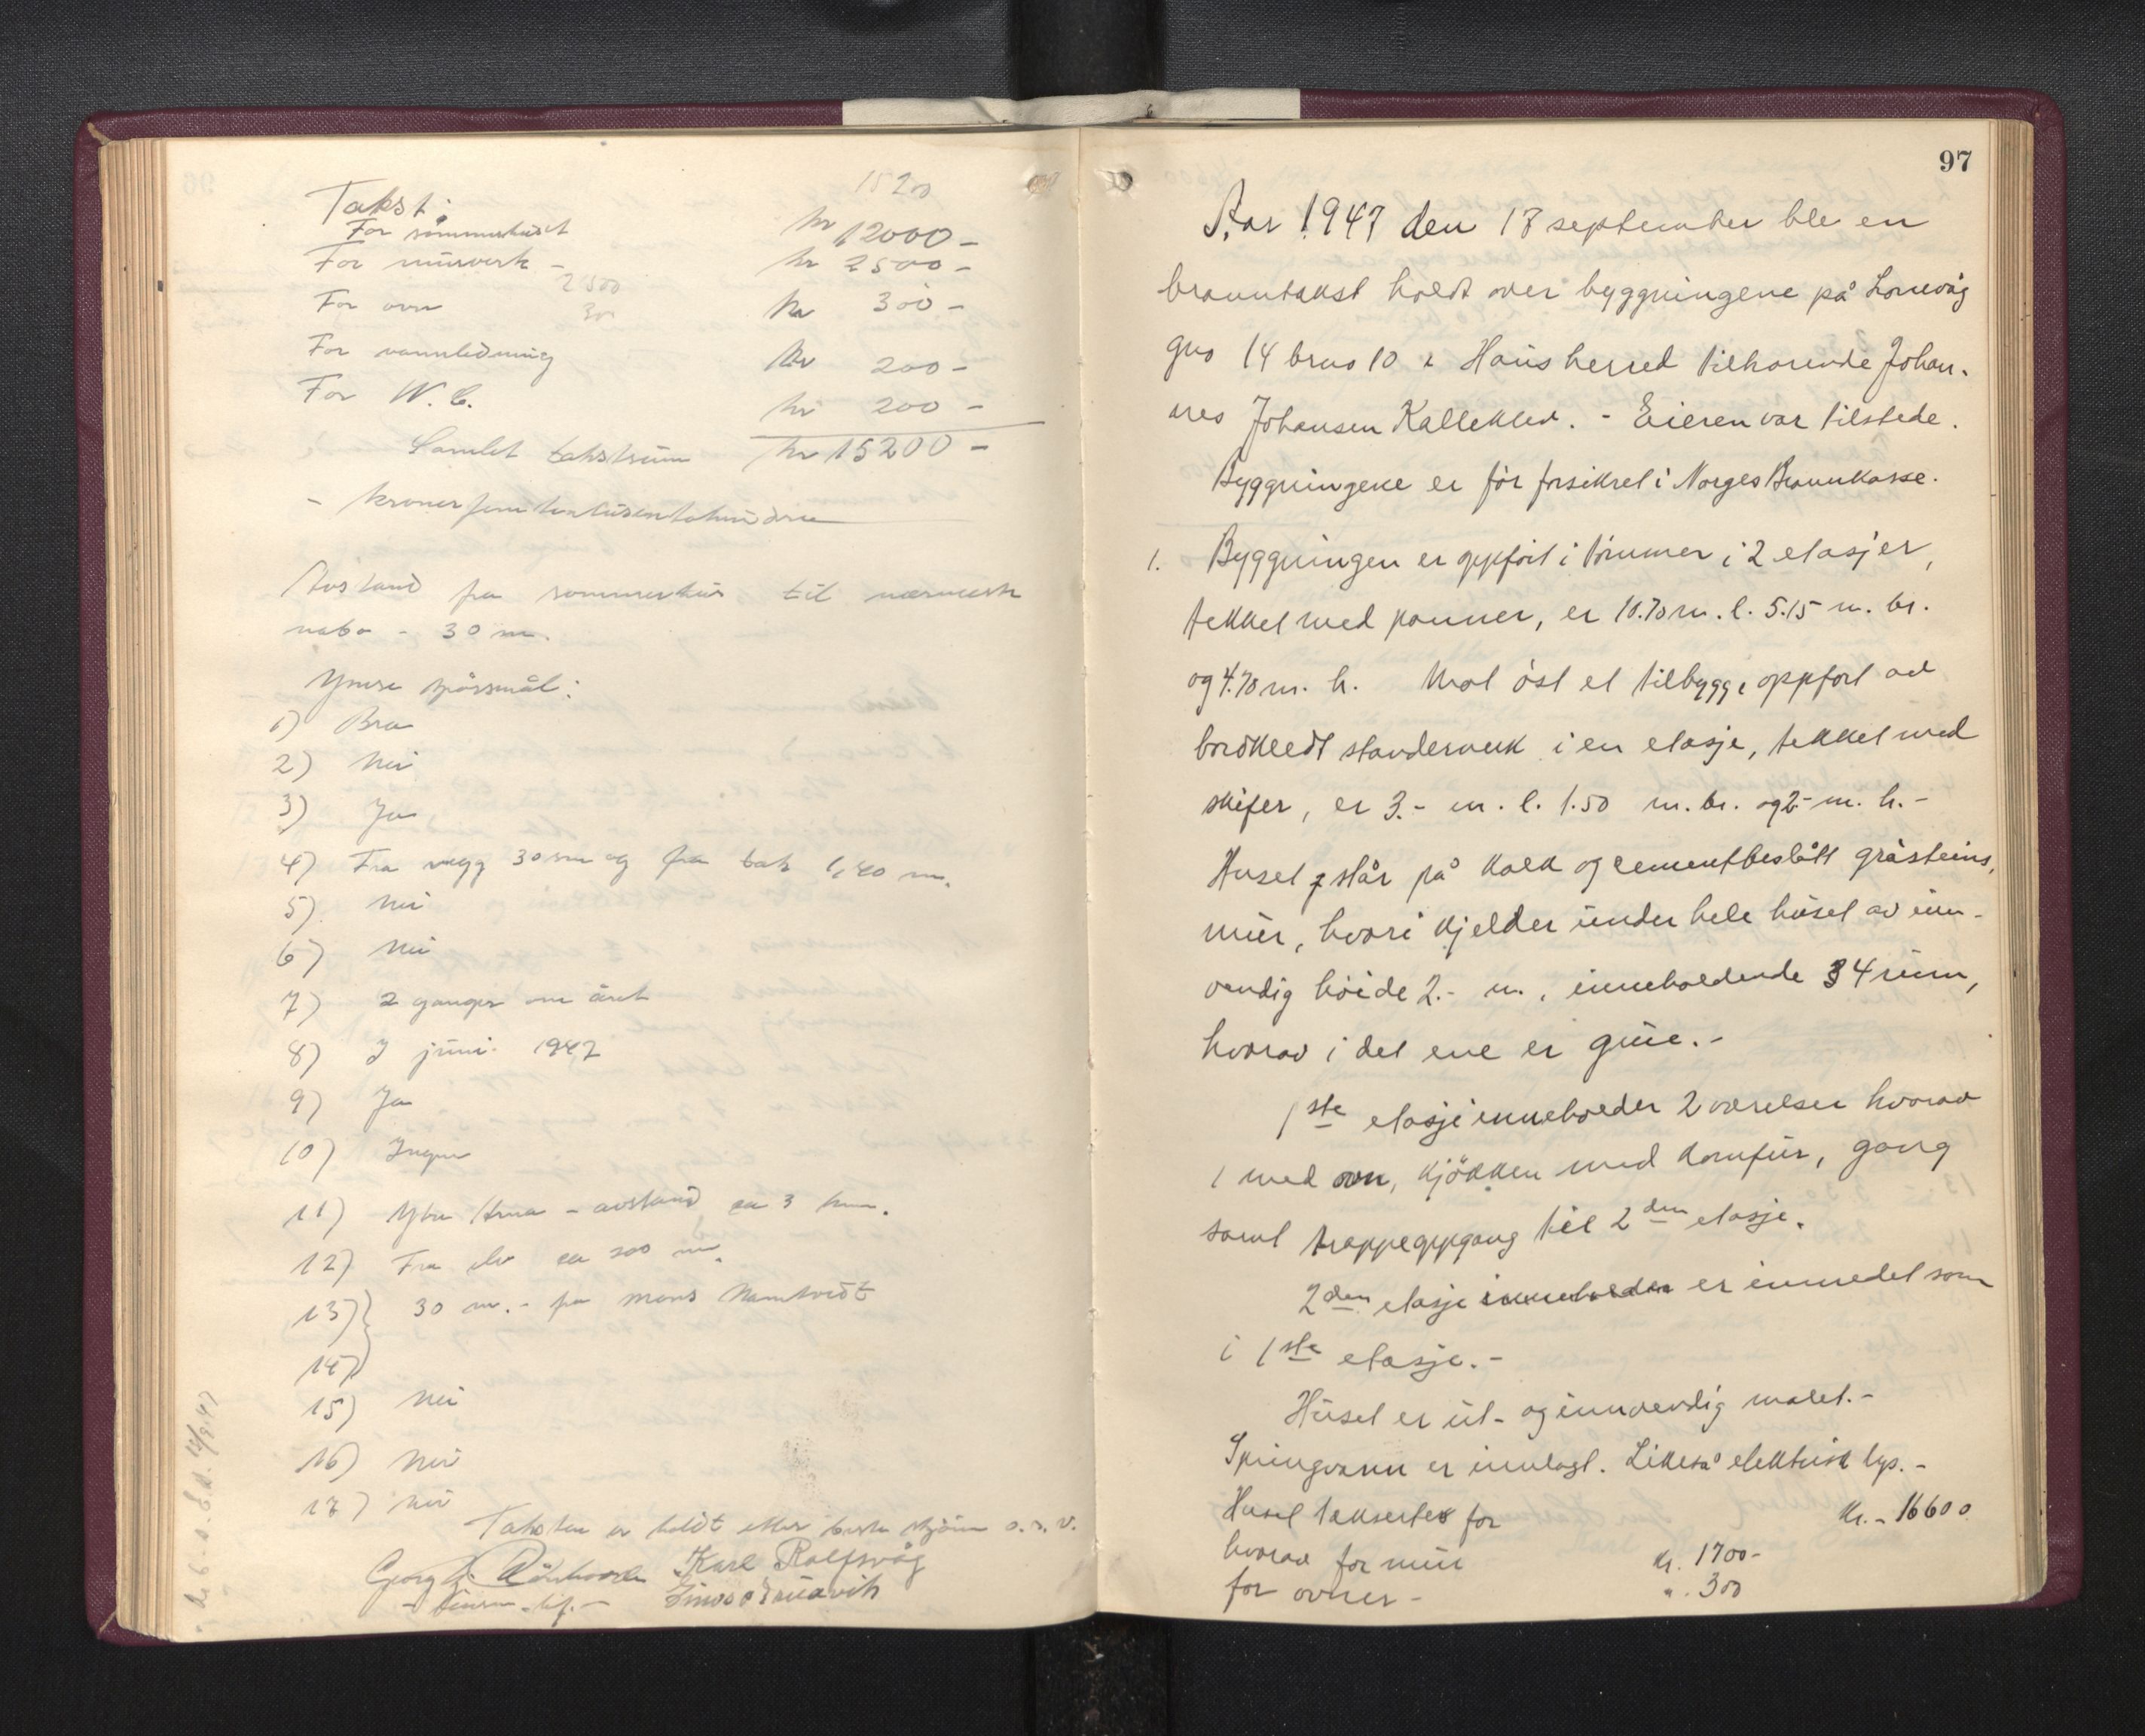 1520
Takst:
For sommerhuset kr 12000 -
For murverk - kr 2500 -
2500
For ovn kr 300 -
300
For vannledning kr 200 -
For W.C. kr 200 -
Samlet takstsum kr 15200 -
- kroner femtentusentohundre
Avstand fra sommerhus til nærmeste
nabo - 30 m.
Ymse spörsmål:
1) Bra
2) Nei
3) Ja
4) Fra vegg 30 cm og fra tak 1,40 m.
5) Nei
6) Nei
7) 2 ganger om året
8) I juni 1947
9) Ja
10) Ingen
11) Ytre Arna - avstand ca 3 km.
12) Fra elv ca 200 m.
13) 30 m. - fra Mons
14)
15) Nei
16) Nei
17) Nei
Taksten er holdt etter beste skjönn o.s.v.
Georg Karl Rolfsvåg
97
Aar 1947 den 18 september ble en
branntakst holdt over byggningene på Lonevåg
gno 14 brno 10 i Haus herred tilhörende Johan-
nes Johansen Kallekleiv. - Eieren var tilstede.
Byggningene er för forsikret i Norges Brannkasse.
1. Byggningen er oppfört i tömmer i 2 etasjer,
tekket med panner, er 10.70 m. l. 5.15 m. br.
og 4.70 m. h. Mot öst et tilbygg, oppfört av
bordkledt standerverk i en etasje, tekket med
skifer, er 3.- m. l. 1.50 m. br. og 2- m. h. -
Huset står på kalk og cementbeslått gråsteins,
mur, hvori kjelder under hele huset av inn-
vendig höide 2.- m., inneholdende 4 rum,
hvorav i det ene er grue. -
1ste etasje inneholder 2 værelser hvorav
1 med ovn, kjökken med komfur, gang
samt trappeoppgang til 2den etasje.
2den etasje inneholder er innredet som
i 1ste etasje. -
Huset er ut- og innvendig malet. -
Springvann er innlagt. Likeså elektrisk lys. -
Huset taksertes for kr. - 16600
hvorav for mur kr. 1700 -
for ovner - " . 300